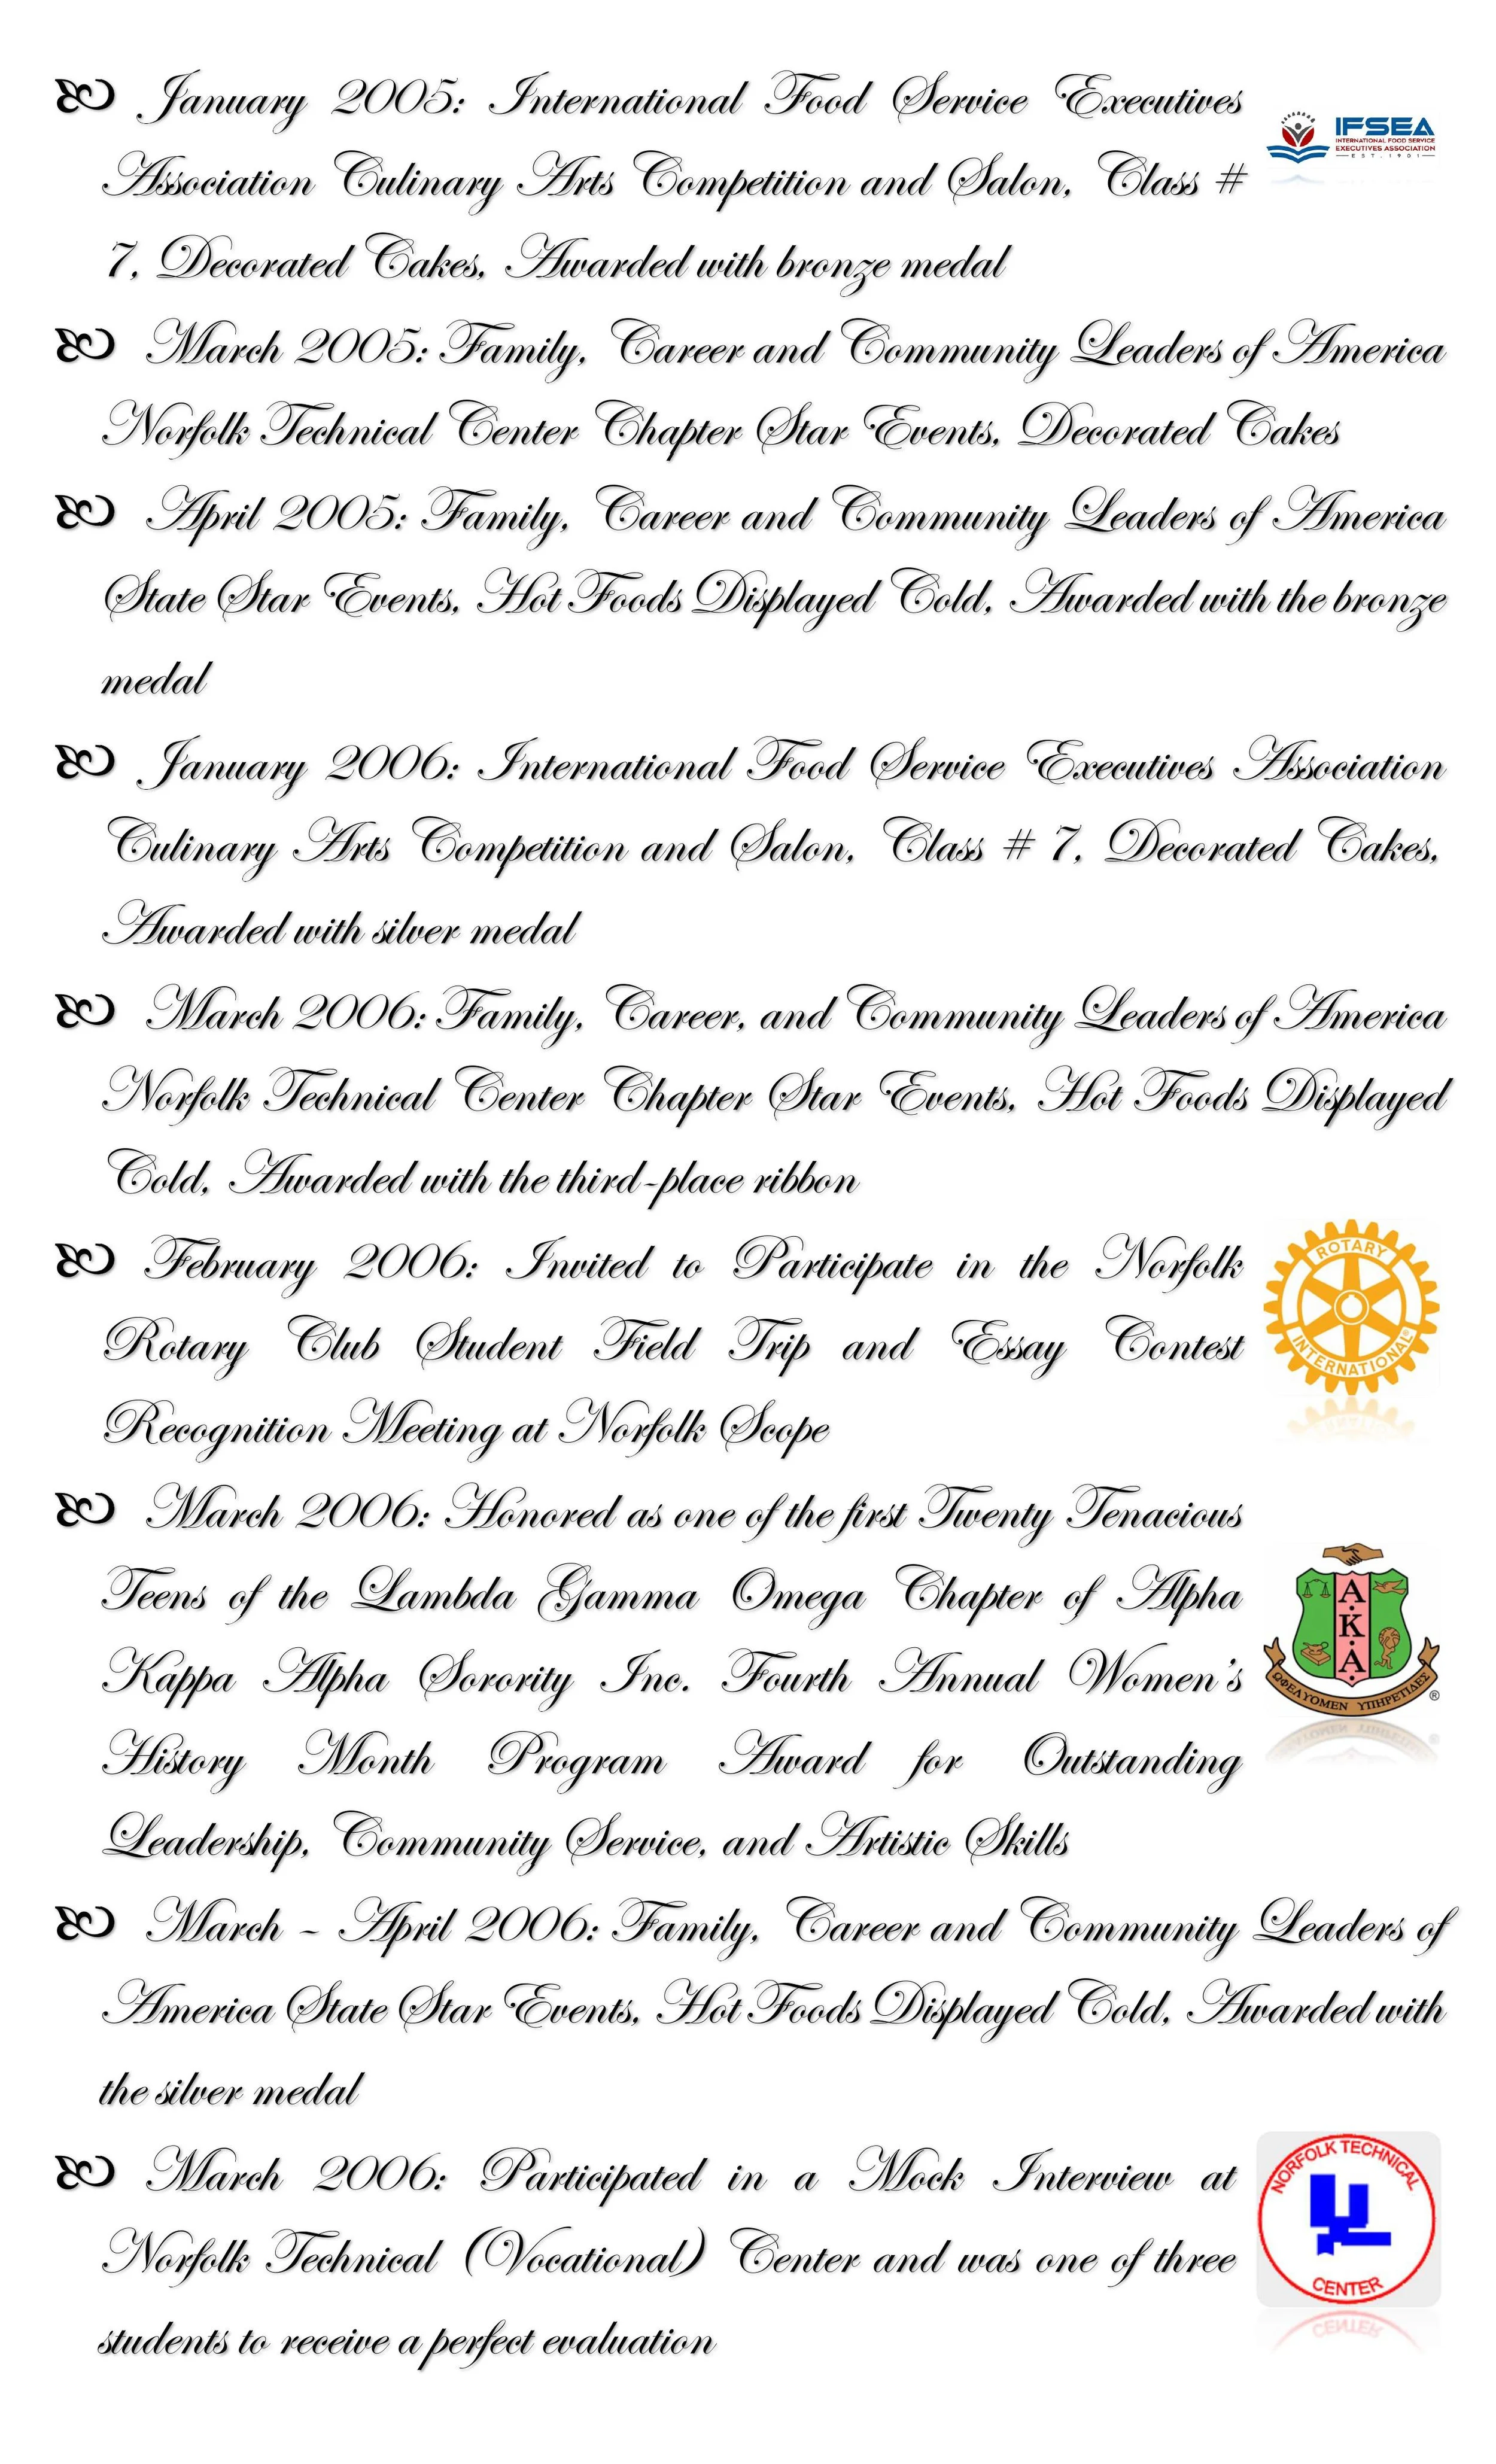 January 2005: International Food Service Executives
Association Culinary Arts Competition and Salon, Class #
7, Decorated Cakes, Awarded with bronze medal
IFSEA
INTERNATIONAL FOOD SERVICE
EXECUTIVES ASSOCIATION
EST. 1901
March 2005: Family, Career and Community Leaders of America
Norfolk Technical Center Chapter Star Events, Decorated Cakes
April 2005: Family, Career and Community Leaders of America
State Star Events, Hot Foods Displayed Cold, Awarded with the bronze
medal
January 2006: International Food Service Executives Association
Culinary Arts Competition and Salon, Class # 7, Decorated Cakes,
Awarded with silver medal
March 2006: Family, Career, and Community Leaders of America
Norfolk Technical Center Chapter Star Events, Hot Foods Displayed
Cold, Awarded with the third-place ribbon
February 2006: Invited to Participate in the Norfolk
Rotary Club Student Field Trip and Essay Contest
Recognition Meeting at Norfolk Scope
ROTARY
INTERNATIONAL®
March 2006: Honored as one of the first Twenty Tenacious
Teens of the Lambda Gamma Omega Chapter of Alpha
Kappa Alpha Sorority Inc. Fourth Annual Women's
History Month Program Award for Outstanding
Leadership, Community Service, and Artistic Skills
A.K.A.
ΩΦΕΛΥΟΜΕΝ ΥΠΗΡΕΤΙΔΕΣ
®
March - April 2006: Family, Career and Community Leaders of
America State Star Events, Hot Foods Displayed Cold, Awarded with
the silver medal
March 2006: Participated in a Mock Interview at
Norfolk Technical (Vocational) Center and was one of three
students to receive a perfect evaluation
NORFOLK TECHNICAL
CENTER